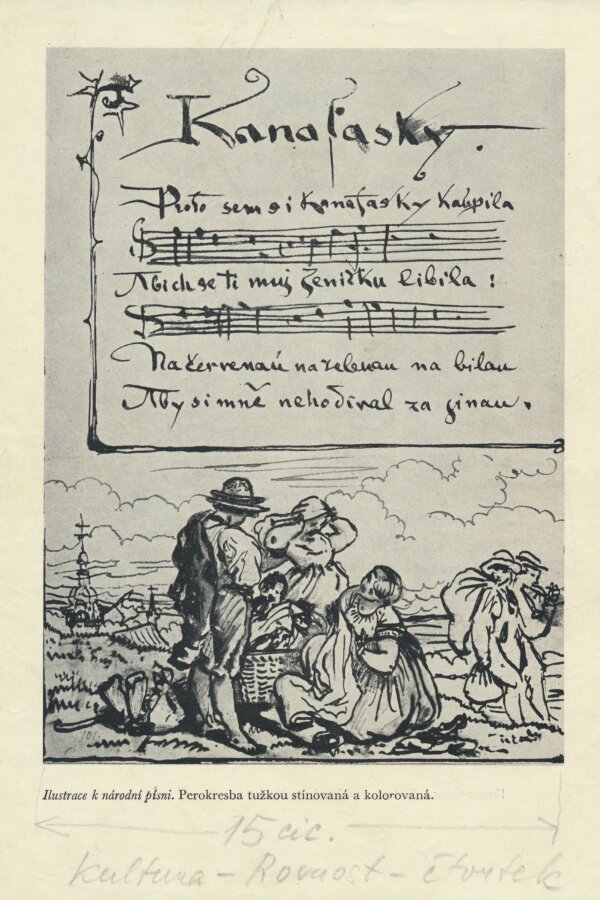 Kanafasky.
Proto sem si Kanafasky Kaupila
Abich se ti muj Ženičku libila :
Na červenau na zelenau na bilau
Aby si mně nehodival za ginau.
Ilustrace k národní písni. Perokresba tužkou stínovaná a kolorovaná.
15 cic.
Kultura – Rovnost – čtvrtek